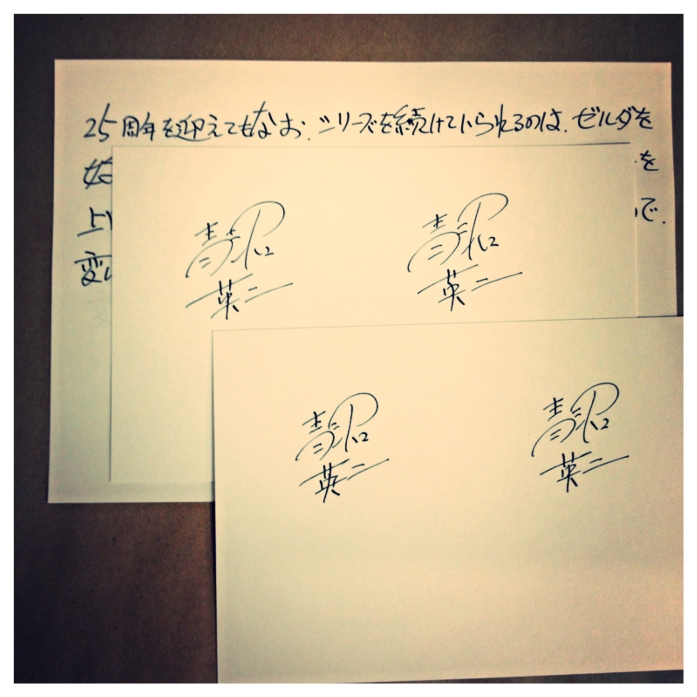 25周年を迎えてもなお、シリーズを続けていられるのは、ゼルダを
を
上
で、
変
青沼 青沼
英二 英二
青沼 青沼
英二 英二